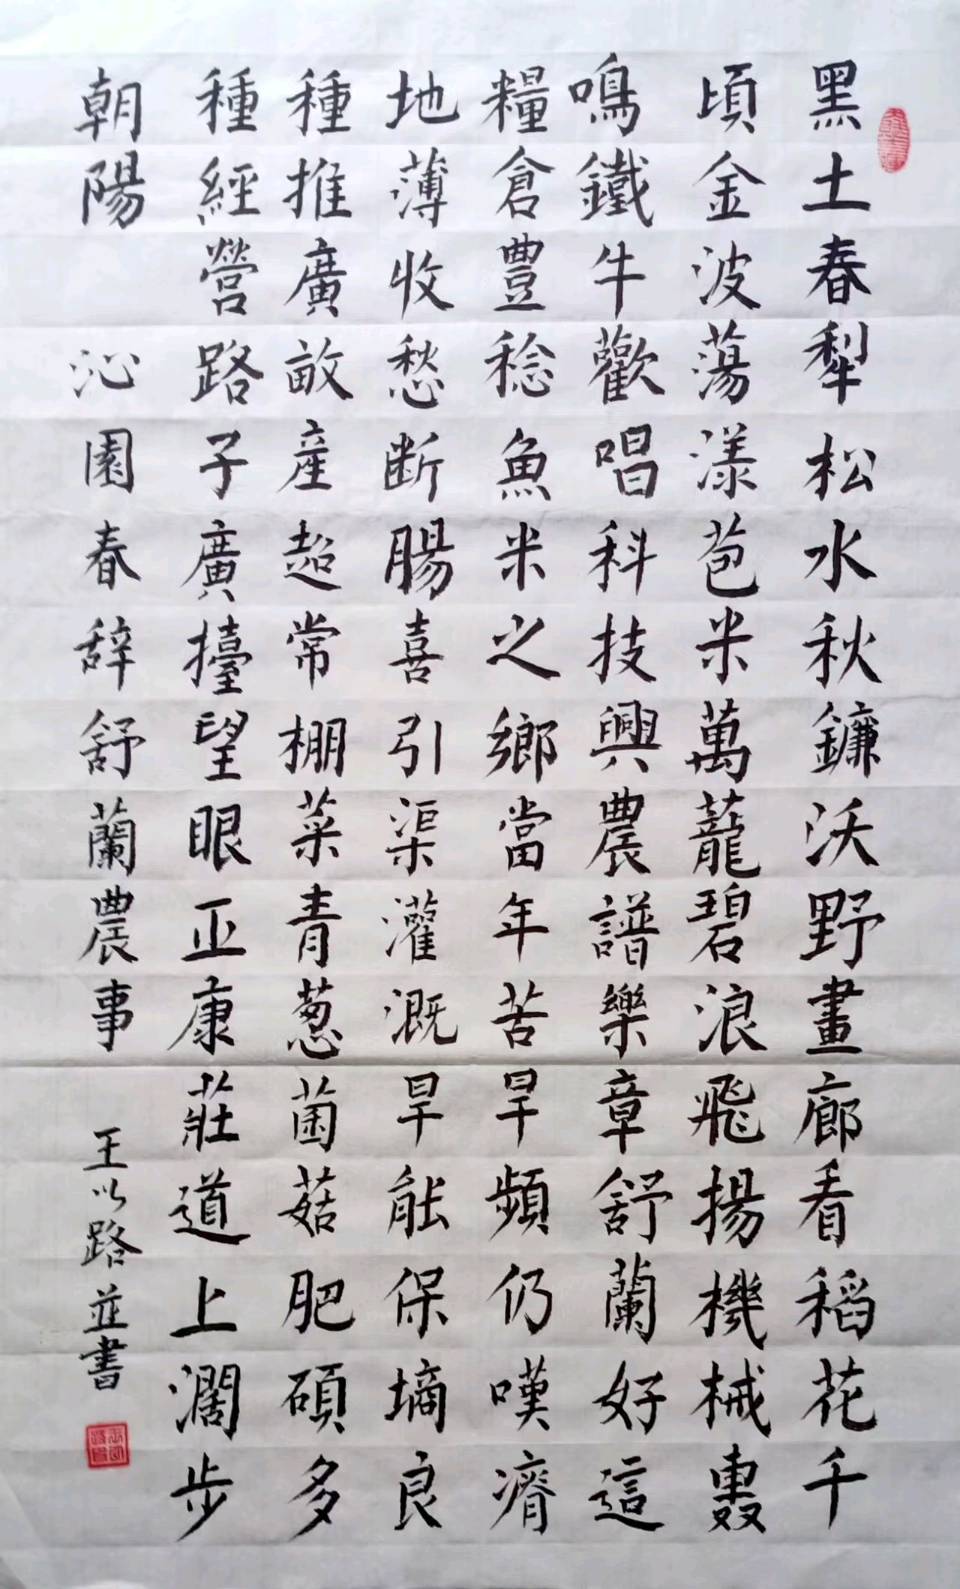 黑土春犁松水秋鐮沃野畫廊看稻花千
頃金波蕩漾苞米萬蘢碧浪飛揚機械轟
鳴鐵牛歡唱科技興農譜樂章舒蘭好這
糧倉豐稔魚米之鄉當年苦旱頻仍嘆瘠
地薄收愁断腸喜引渠灌溉旱能保墒良
種推廣畝產超常棚菜青葱菌菇肥碩多
種經營路子廣擡望眼正康莊道上濶步
朝陽 沁園春辞舒蘭農事 王以路並書